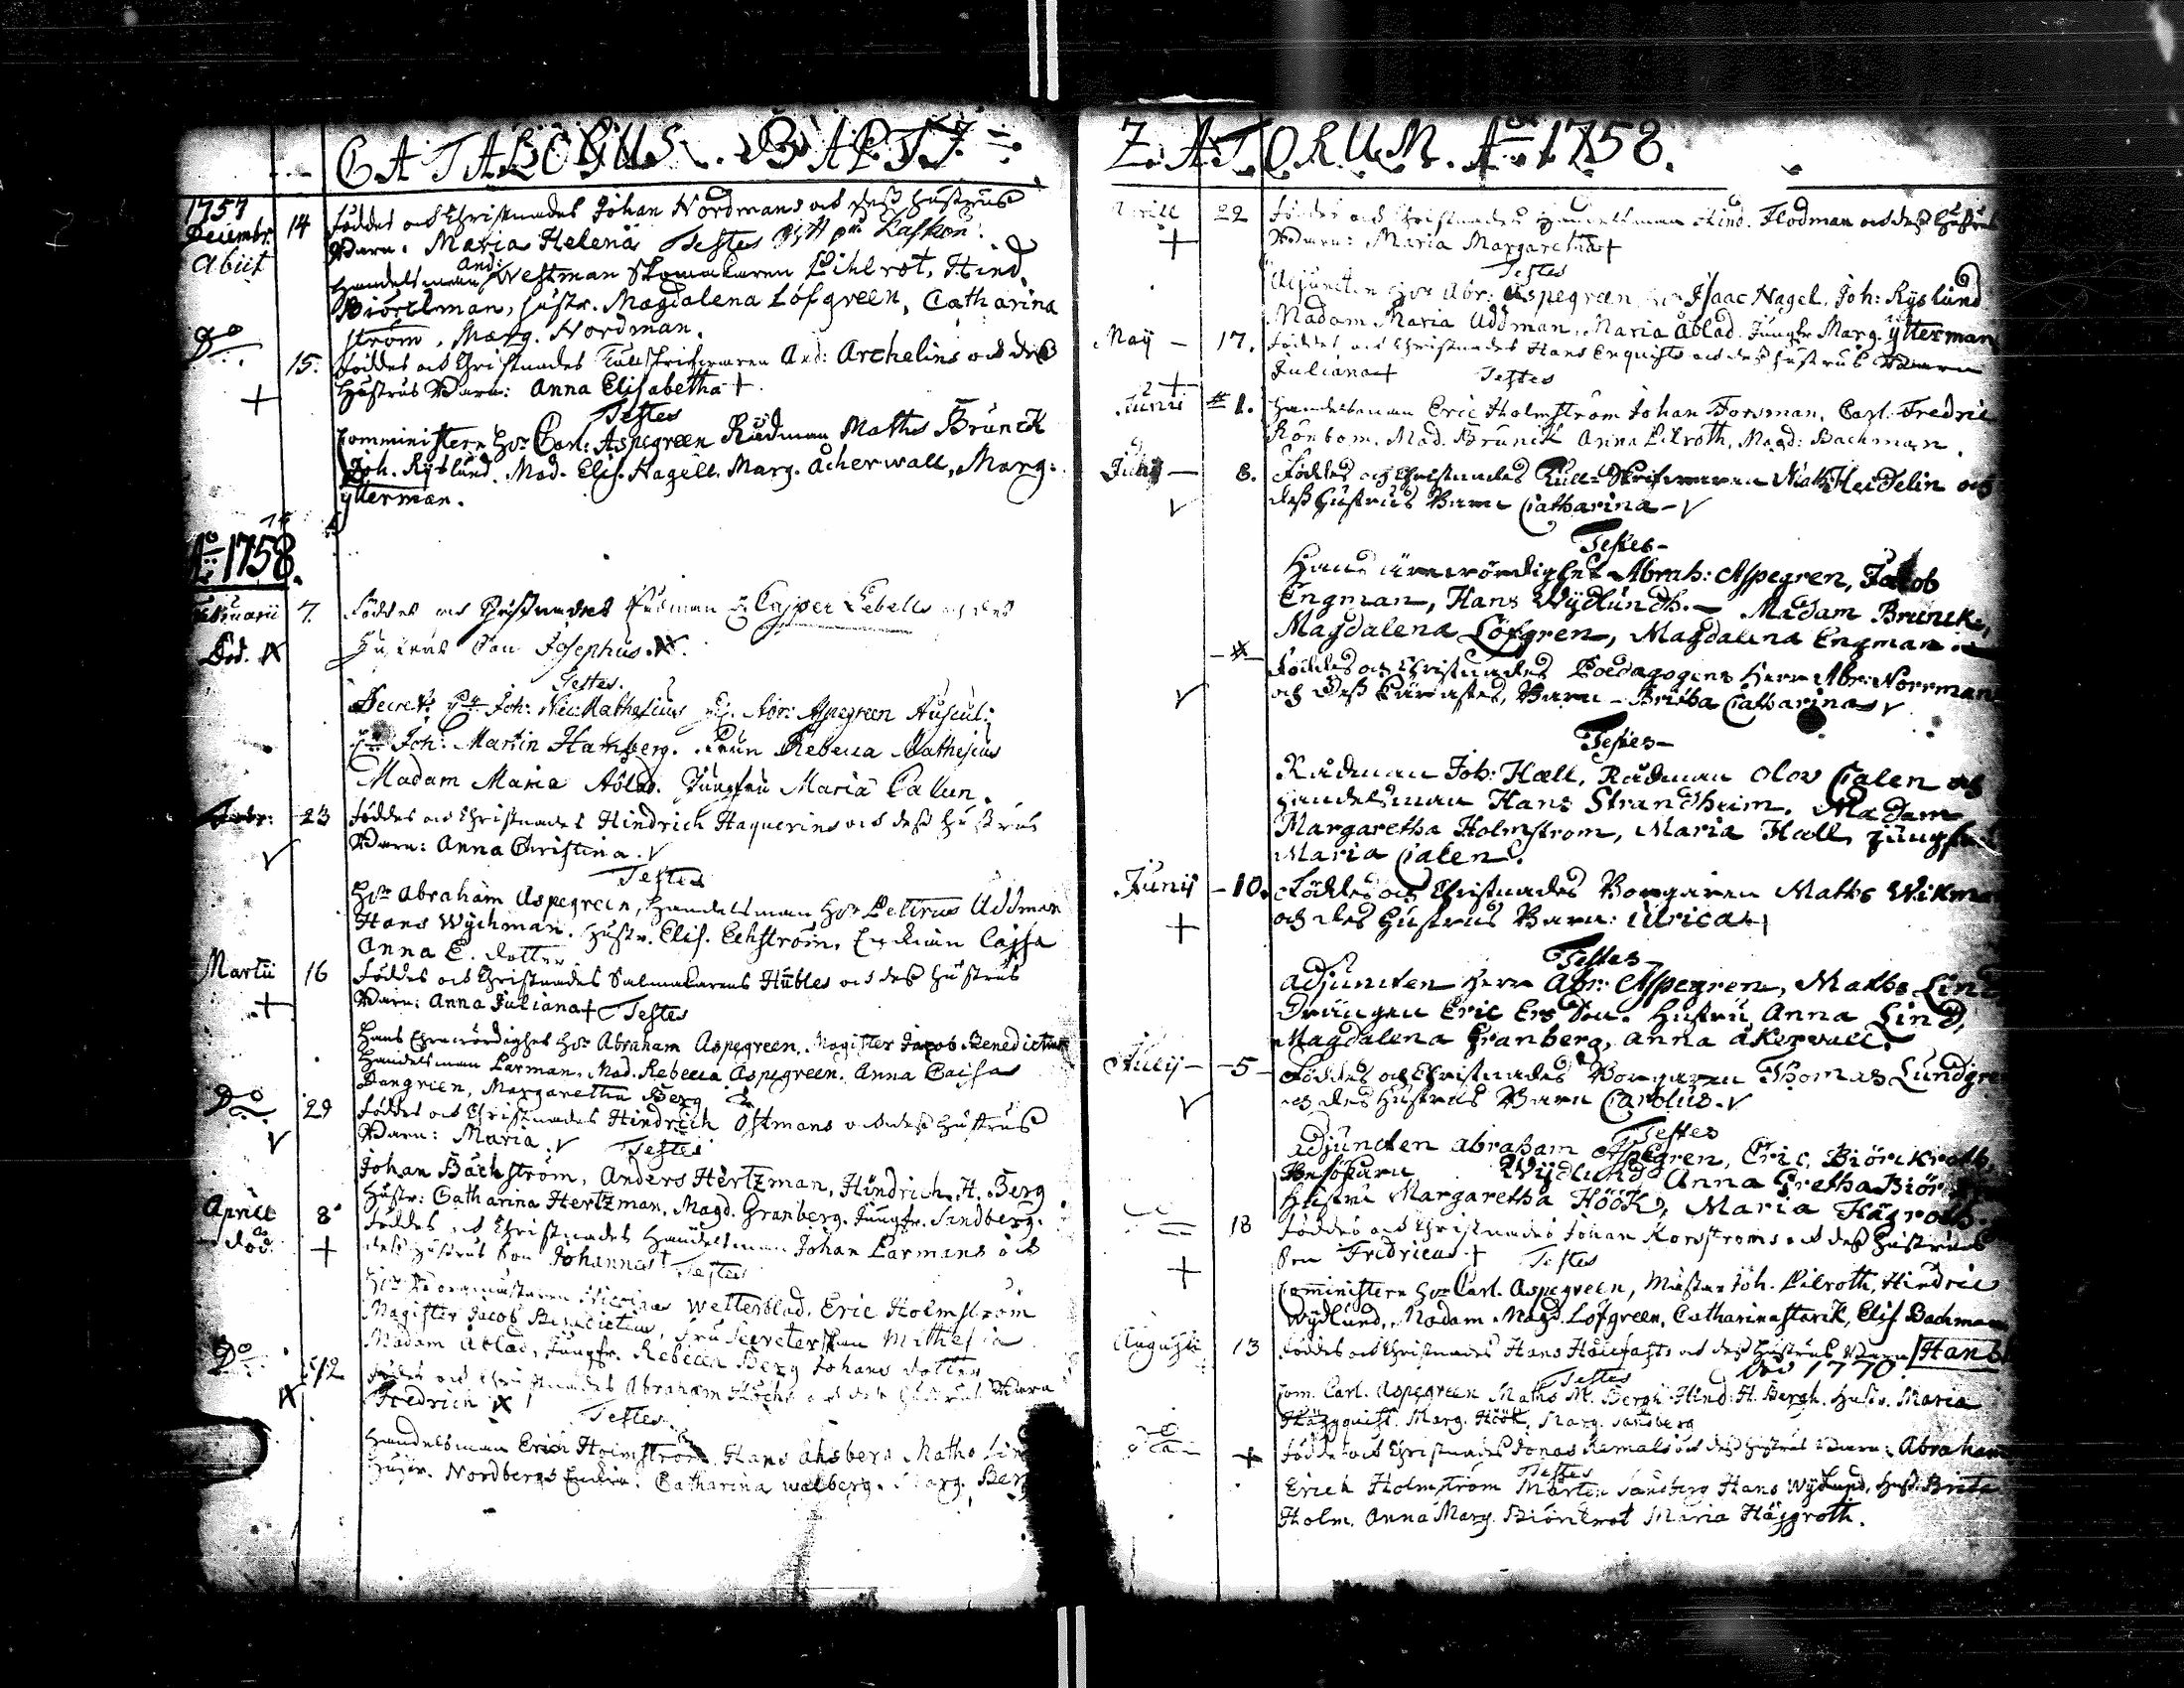 CATALOGUS BAPTI=
1757
Decembr. 14 Föddes och Christnades Johan Nordmans och dess hustrus
abiit Barn: Maria Helena Testes
Handelsman And: Westman Skomakaren Lihlrot, Hind.
Biörckman, hustr. Magdalena Löfgreen, Catharina
ström, Marg. Nordman.
Do 15. Föddes och Christnades Tullskrifwaren And: Archelins och dess
+ Hustrus Barn: Anna Elisabetha +
Testes
Comministern Hr Carl: Aspegreen Rådman Maths Brunck
Joh. Rÿslund. Mad. Elis. Hagell. Marg. Åcherwall, Marg:
ÿtterman.
Ao 1758.
Februarii 7. Föddes och Christnades Rådman Casper Lebells och dess
Död. Hustrus Son Josephus.
Testes.
Secret: Hr Joh: Nic: Mathesius Abr: Aspegreen Auscul:
Hr Joh: Martin Hamberg. Frun Rebecca Mathesius
Madam Maria Åblad. Jungfru Maria Calun.
Febr: 23 Föddes och Christnades Hindrich Haquerins och dess hustrus
√ Barn: Anna Christina. √
Testes
Hr Abraham Aspegreen, Handelsman Hr Petrus Uddman
Hans Wÿchman. Hustr. Elis. Eckström, Enckian Cajsa
Anna E. dotter
Martii 16 Föddes och Christnades Salmakarens Hübles och dess Hustrus
+ Barn: Anna Juliana + Testes
Hans Ehrewördighet Hr Abraham Aspegreen, Magister Jacob Benedictius
Handelsman Larman, Mad. Rebecca Aspegreen. Anna Caisa
Dangrien, Margaretha Berg
Do 29 Föddes och Christnades Hindrich Östmans och dess Hustrus
√ Barn: Maria. √ Testes
Johan Bäckström, Anders Hertzman, Hindrich H. Berg
Hustr: Catharina Hertzman, Magd. Granberg. Jungfr. Sandberg.
Aprill 8 Föddes och Christnades Handelsman Johan Larmans och
död. + dess Hustrus Son Johannes + Testes
Nicolaus Wetterblad. Eric Holmström
Magister Jacob Benedictius, Fru Secreterskan Mathesia
Madam Åblad, Jungfr. Rebecca Berg Johans dotter
Do 12 Föddes och Christnades Abraham Höcks och dess Hustrus Barn
Fredrich Testes
Handelsman Erich Holmström, Hans Ahsberg Maths Lind
Hustr. Nordbergs Enkia. Catharina walberg. Marg. Berg
ZATORUM. Ao 1758.
Aprill 22 Föddes och Christnades Handelsman Hind. Flodman och dess Hustrus
+ Barn: Maria Margaretha +
Testes
Adjuncten Hr Abr: Aspegreen, Isaac Nagel, Joh: Rÿslund
Madam Maria Uddman, Maria Åblad. Jungfr Marg. ÿtterman
Maÿ — 17. Föddes och Christnades Hans Enquists och dess hustrus Barn
+ Juliana + Testes
Junii 1. Handelsman Eric Holmström Johan Forsman, Carl. Fredric
Rönbom. Mad. Brunck Anna Lilroth, Magd: Bachman.
8. Föddes och Christnades Tull-Skrifwaren Math: Heidelin och
√ dess Hustrus Barn Catharina — √
Testes —
Hans ärewördighet Abrah: Aspegren, Jacob
Engman, Hans Wÿdlundh. — Madam Brunck,
Magdalena Löfgren, Magdalena Engman
Föddes och Christnades Poedagogens Herr Abr: Norrman
√ och dess Kärastes, Barn — Britha Catharina √
Testes —
Rådman Joh: Hæll, Rådman Olov Calen och
Handelsman Hans Strandheim, Madam
Margaretha Holmstrom, Maria Hæll, Jungfru
Maria Calen.
Junij — 10. Föddes och Christnades Borgaren Maths Wikman
+ och des Hustrus Barn: Ulrica +
Testes —
adjuncten Herr Abr: Aspegren, Maths Lind
Drängen Eric Ers Son. Hustru Anna Lind,
Magdalena Granberg, Anna Åkerwall.
Julij — 5 — Föddes och Christnades Borgaren Thomas Lundgren
√ och des Hustrus Barn Carolus. √
Testes
adjuncten Abraham Aspegren, Eric Biörckroth,
Wÿdlund Anna Gretha Biörck
Hustru Margaretha Höök, Maria Hägroth.
18 Föddes och Christnades Johan Korsströms och dess Hustrus
+ Son Fredricus + Testes
Comministern Hr Carl. Aspegreen, Mästar Joh. Lilroth, Hindric
Wÿdlund, Madam Magd. Löfgreen, Catharina Starck, Elis. Bachman
Augusti 13 Föddes och Christnades Hans Hällfasts och dess Hustrus Barn Hans
död 1770
Testes
Com. Carl. Aspegreen Maths M. Bergh Hind: H. Bergh. Hustr. Maria
Häggquist. Marg. Höök, Marg. Sandberg
+ Föddes och Christnades Jonas Remals och dess Hustrus Barn: Abraham
Testes
Erich Holmström Mårten Sandberg Hans Wÿdlund, Hust: Brita
Holm. Anna Marg. Biörckrot Maria Häggroth.